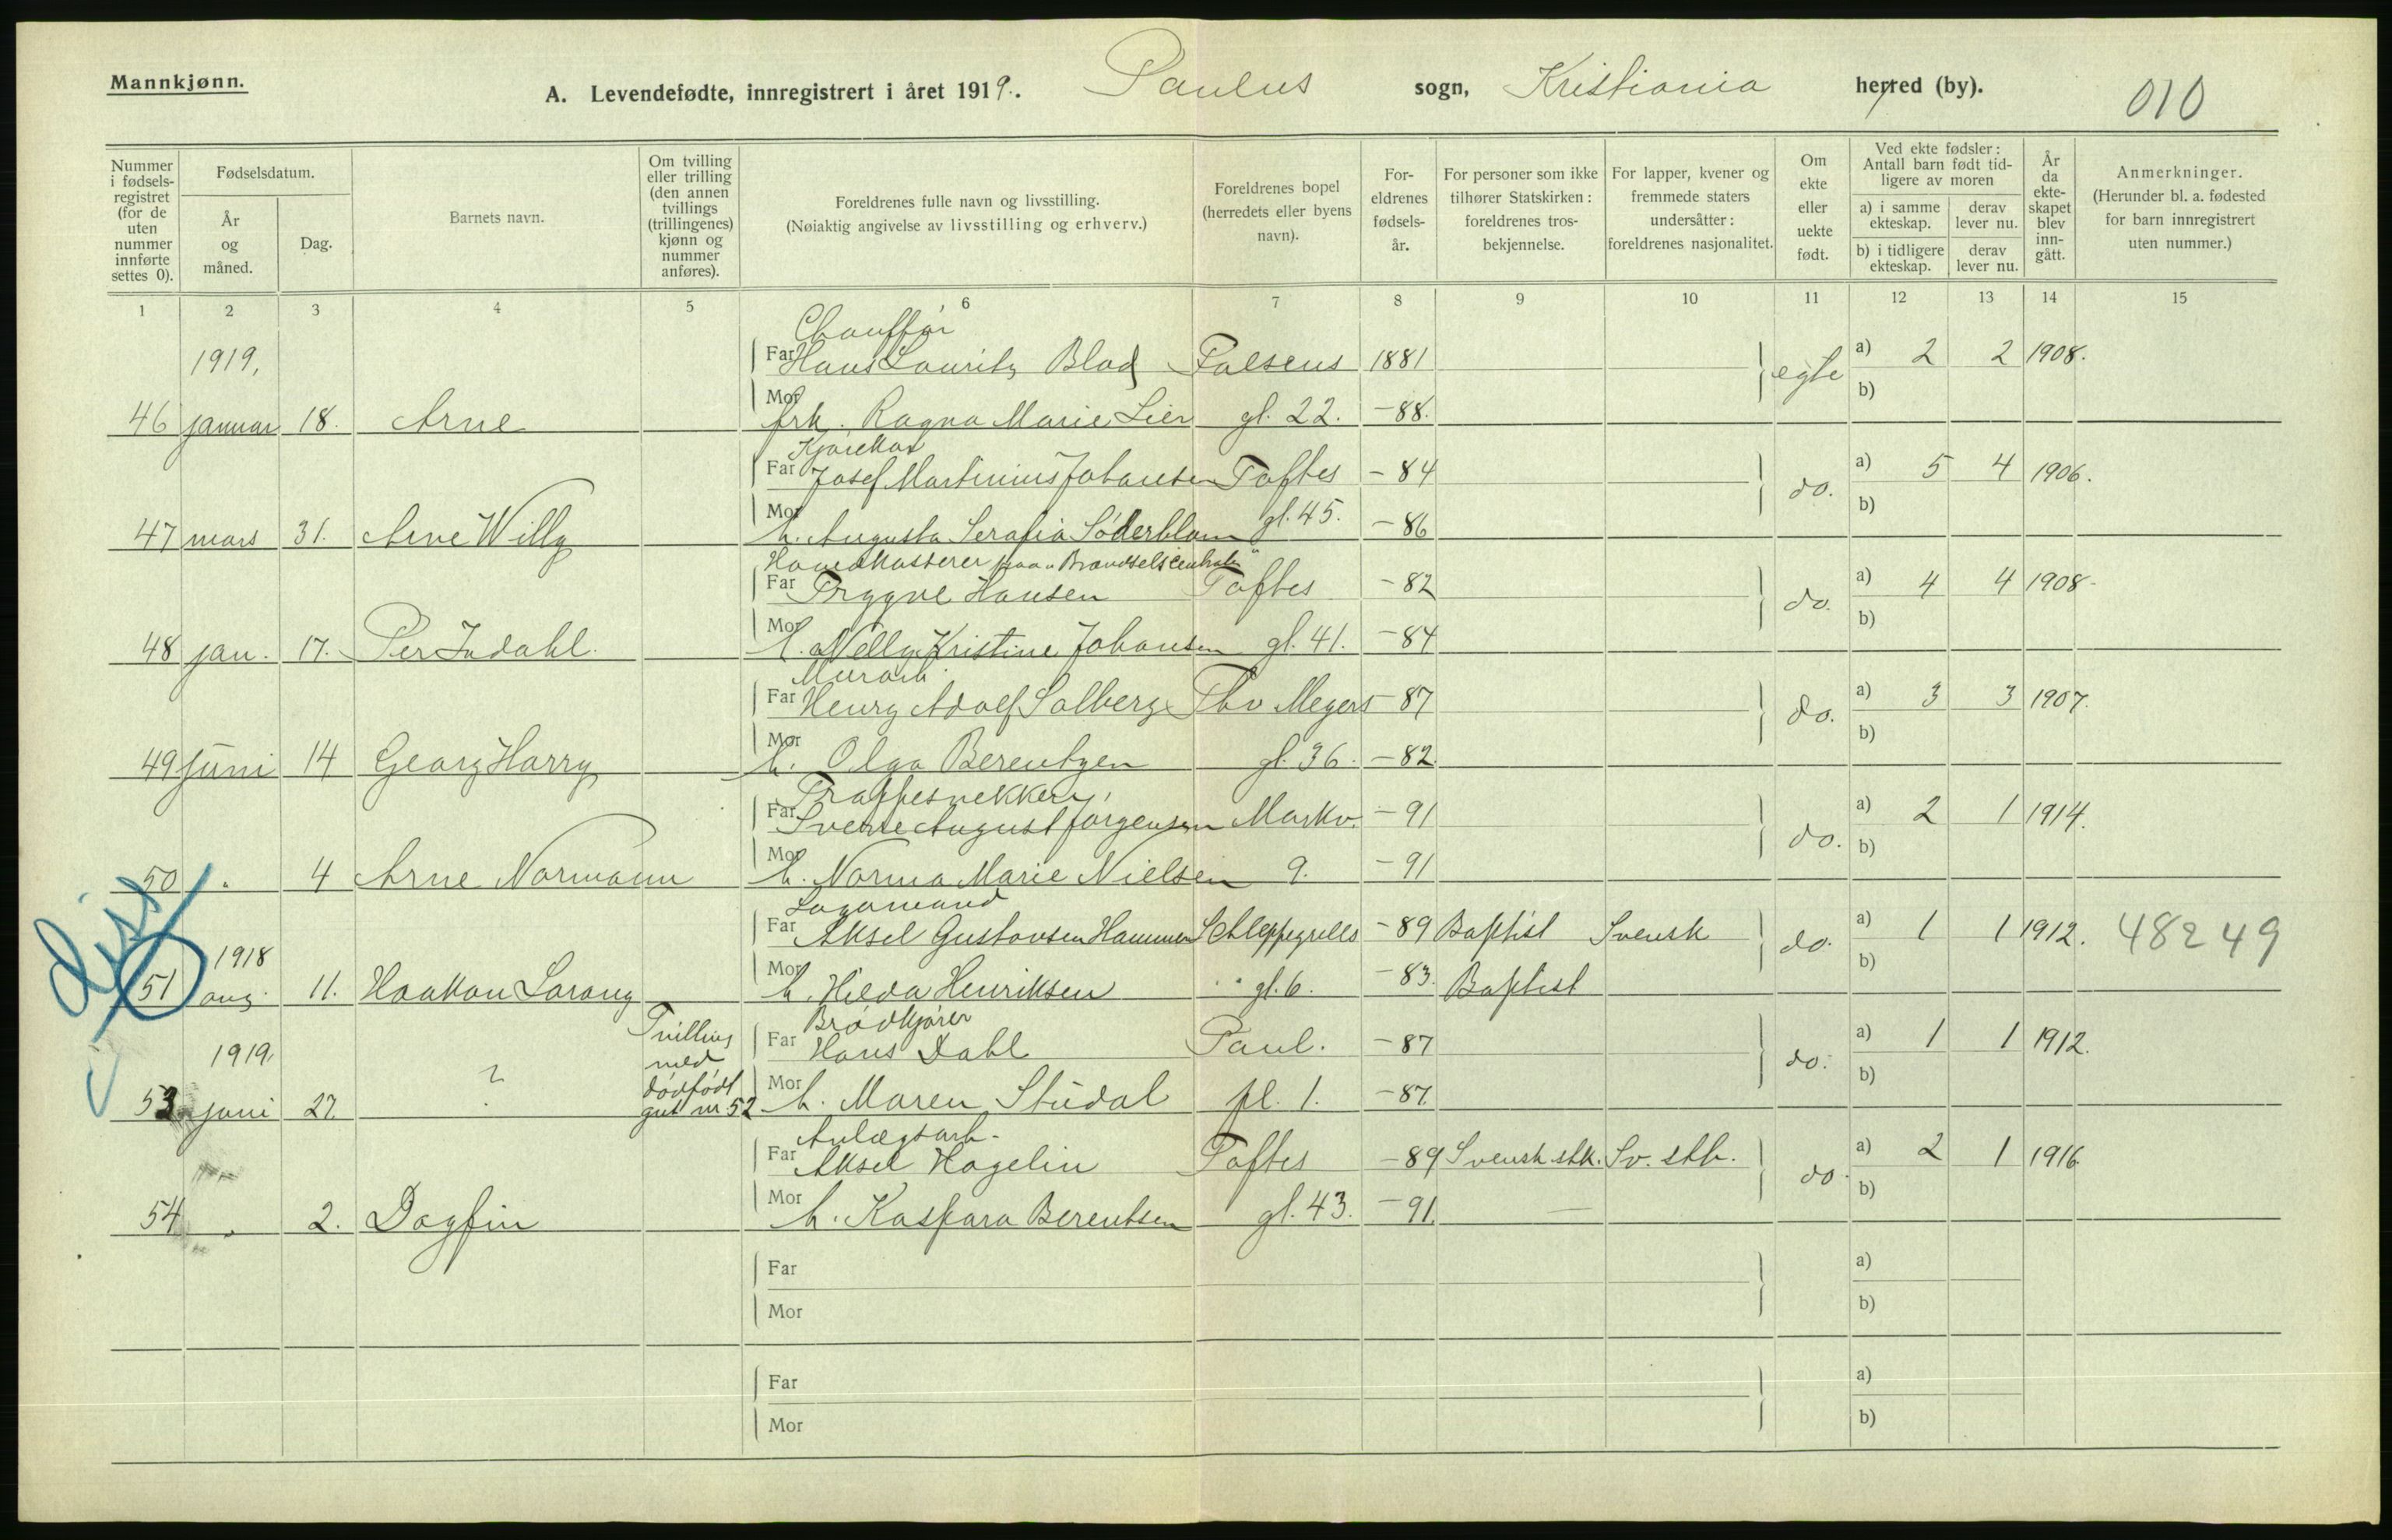 Mannkjønn.
A. Levendefødte, innregistrert i året 1919. Paulus sogn, Kristiania herred (by). 010
Nummer i fødsels-registret (for de uten nummer innførte settes 0).
Fødselsdatum.
År og måned.
Dag.
Barnets navn.
Om tvilling eller trilling (den annen tvillings (trillingenes) kjønn og nummer anføres).
Foreldrenes fulle navn og livsstilling.
(Nøiaktig angivelse av livsstilling og erhverv.)
Foreldrenes bopel (herredets eller byens navn).
For-eldrenes fødsels-år.
For personer som ikke tilhører Statskirken: foreldrenes tros-bekjennelse.
For lapper, kvener og fremmede staters undersåtter: foreldrenes nasjonalitet.
Om ekte eller uekte født.
Ved ekte fødsler: Antall barn født tid-ligere av moren
a) i samme ekteskap.
derav lever nu.
b) i tidligere ekteskap.
derav lever nu.
År da ekte-skapet blev inn-gått.
Anmerkninger.
(Herunder bl. a. fødested for barn innregistrert uten nummer.)
1 2 3 4 5 6 7 8 9 10 11 12 13 14 15
Chauffør
1919, Far Hans Lauritz Blad Falsens 1881 egte a) 2 2 1908.
46 januar 18. Arne Mor frk. Ragna Marie Lier gl. 22. -88. b)
Kjørekar
Far Josef Martinius Johansen Toftes -84 do. a) 5 4 1906.
47 mars 31. Arne Willy Mor h. Augusta Serafia Söderblom gl. 45. -86 b)
"Brændselscentralen"
Far Trygve Hansen Toftes -82 do. a) 4 4 1908-
48 jan. 17. Per Indahl. Mor h. Nelly Kristine Johansen gl. 41. -84 b)
Murarb.
Far Henry Adolf Solberg Thv Meyers -87 do. a) 3 3 1907.
49 juni 14 Georg Harry Mor h. Olga Berentzen gl. 36. -82. b)
Trappesnekker,
Far Sverre August Jørgensen Markv. -91 do. a) 2 1 1914.
50 " 4 Arne Normann Mor h. Norma Marie Nielsen 9. -91 b)
Lagermand
1918 Far Aksel Gustavsen Hammer Schleppegrells -89 Baptist Svensk do. a) 1 1 1912. 48249
51 aug. 11. Haakon Mor h. Hilda Henriksen " gl. 6. -83. Baptist b)
Brødkjører
1919. Tvilling med dødfødt gut nr 52 Far Hans Dahl Paul. -87 do. a) 1 1 1912.
53 juni 27. ? Mor h. Maren Studal pl. 1. -87. b)
Anlægsarb.
Far Aksel Hagelin Toftes -89 Svensk stk. Sv. stb. do. a) 2 1 1916.
54 " 2. Dagfin Mor h. Kaspara Berentsen gl. 43. -91. — b)
Far a)
Mor b)
Far a)
Mor b)